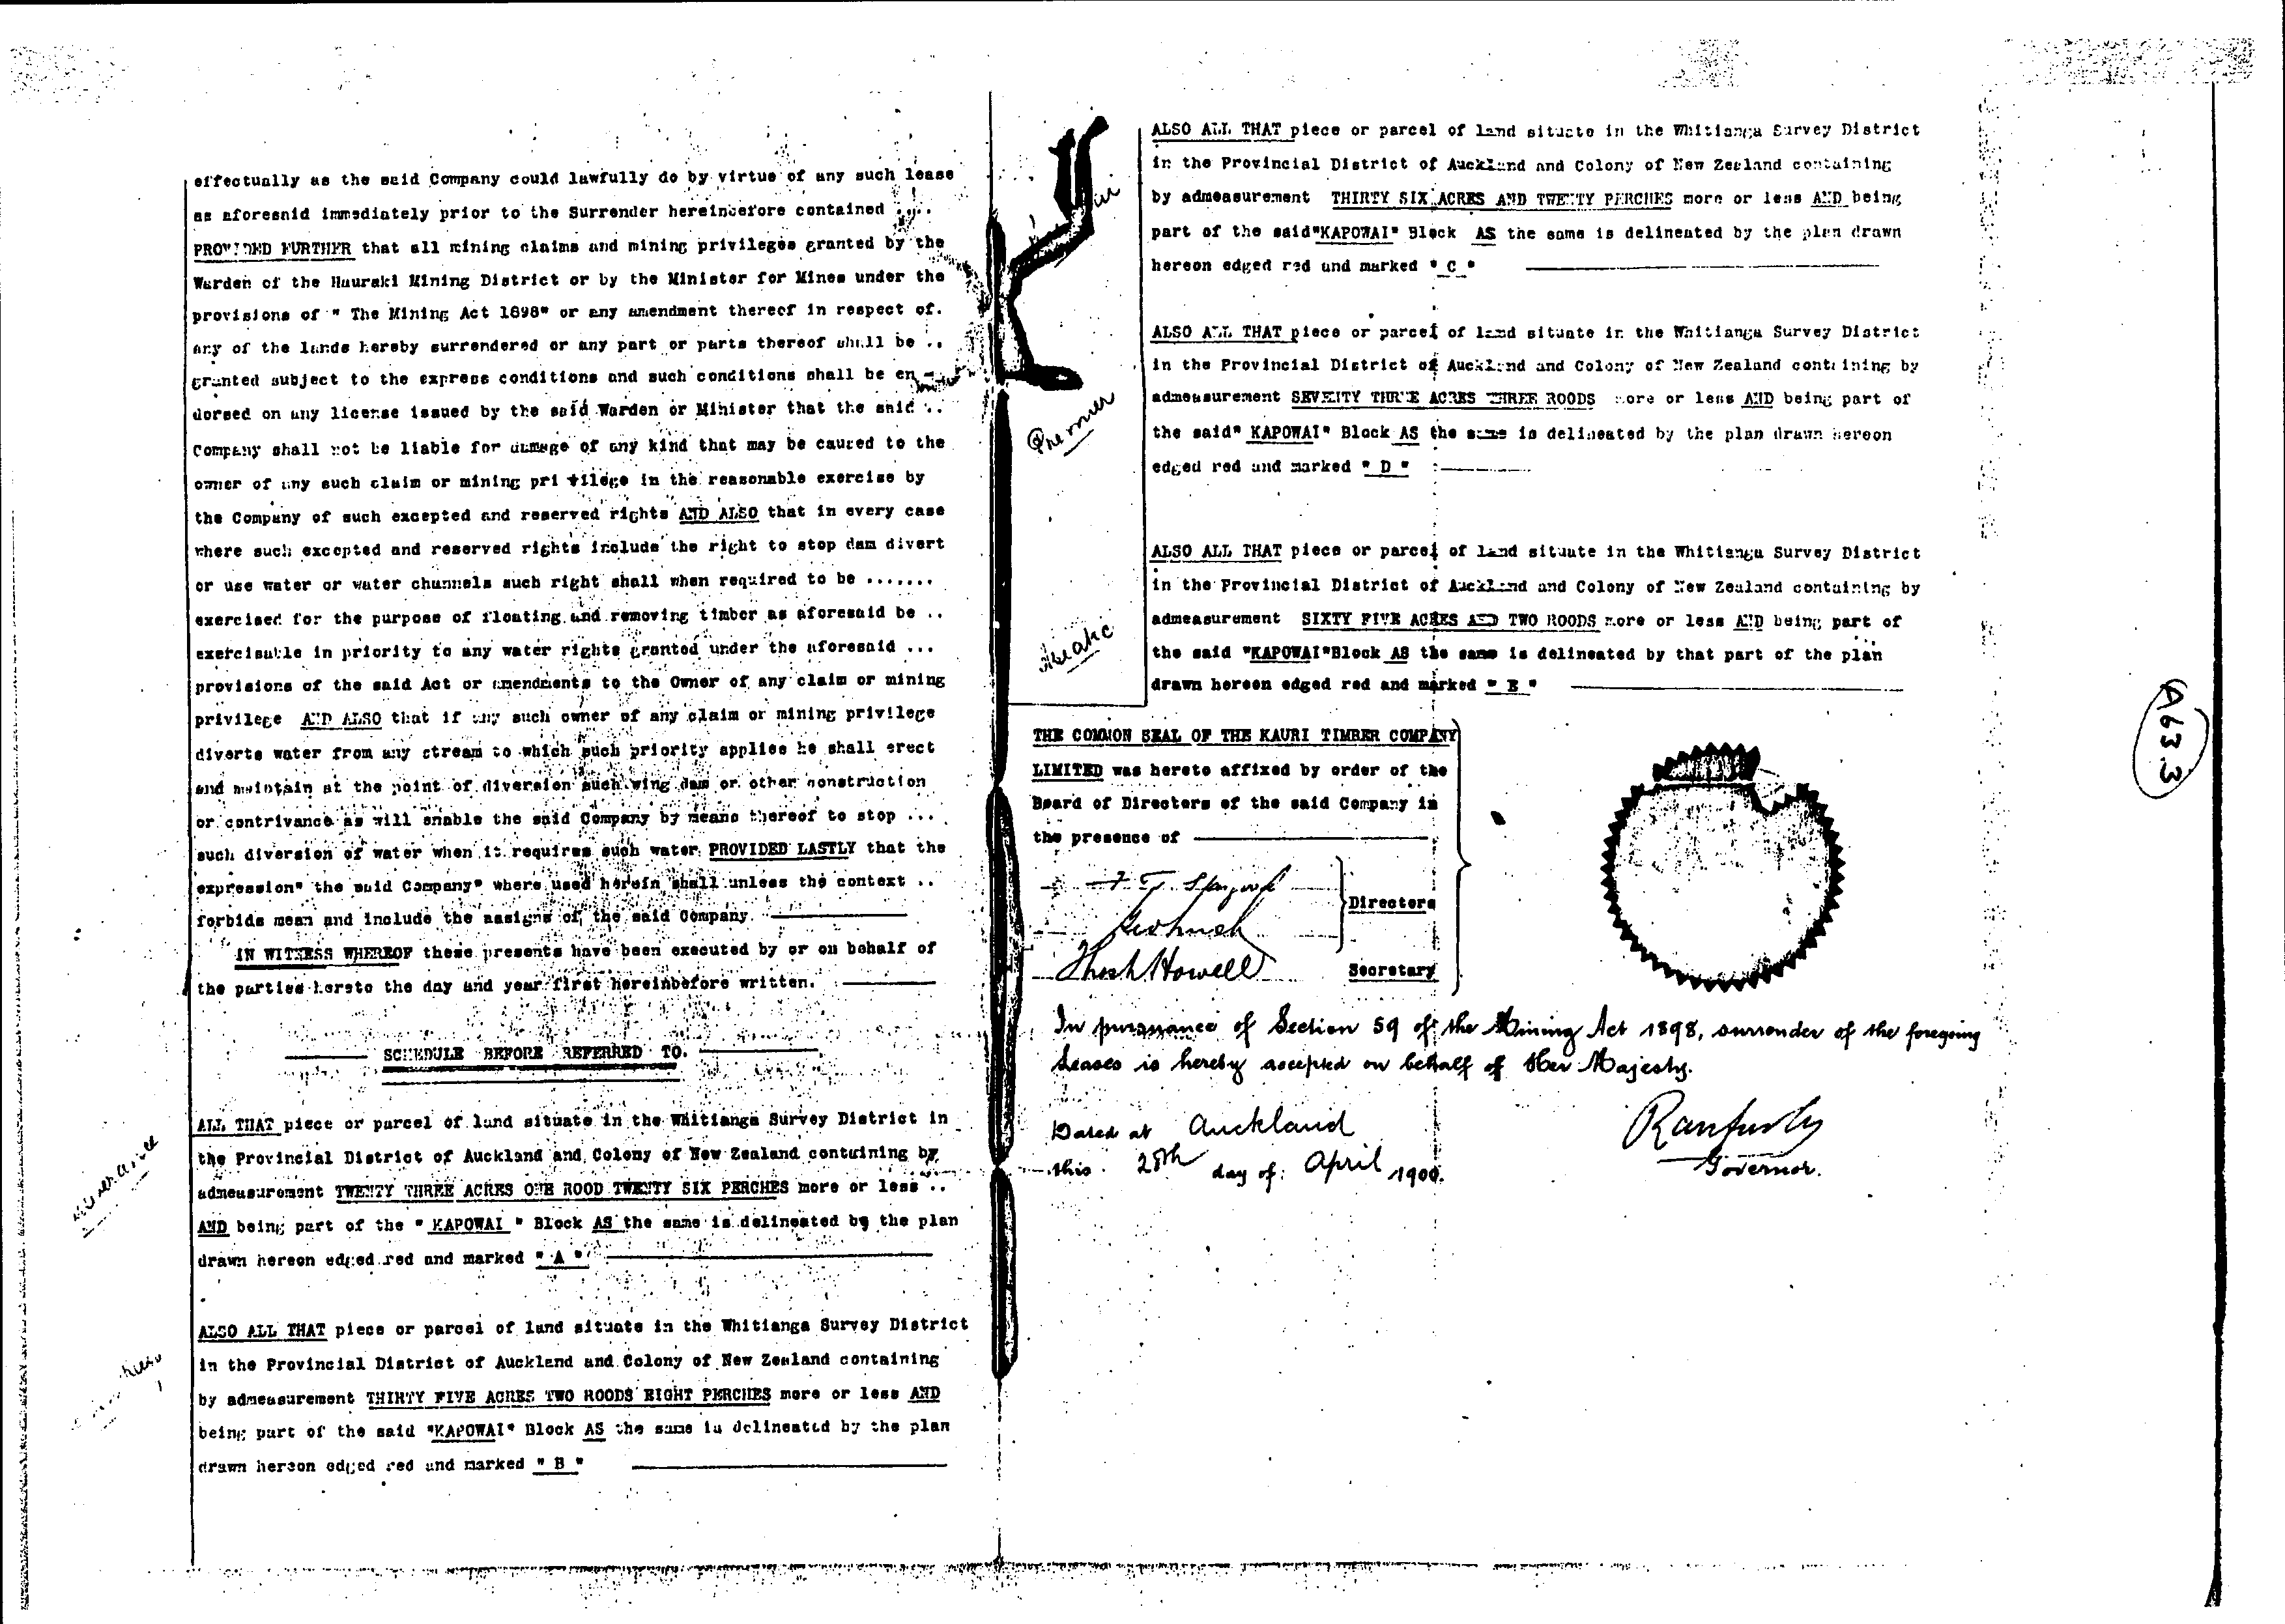 effectually as the said Company could lawfully do by virtue of any such lease
as aforesaid immediately prior to the Surrender hereinbefore contained ....
PROVIDED FURTHER that all mining claims and mining privileges granted by the
Warden of the Hauraki Mining District or by the Minister for Mines under the
provisions of " The Mining Act 1898" or any amendment thereof in respect of.
any of the lands hereby surrendered or any part or parts thereof shall be ..
granted subject to the express conditions and such conditions shall be en -
dorsed on any license issued by the said Warden or Minister that the said ..
Company shall not be liable for damage of any kind that may be caused to the
owner of any such claim or mining privilege in the reasonable exercise by
the Company of such excepted and reserved rights AND ALSO that in every case
where such excepted and reserved rights include the right to stop dam divert
or use water or water channels such right shall when required to be .......
exercised for the purpose of floating and removing timber as aforesaid be ..
exercisable in priority to any water rights granted under the aforesaid ...
provisions of the said Act or amendments to the Owner of any claim or mining
privilege AND ALSO that if any such owner of any claim or mining privilege
diverts water from any stream to which such priority applies he shall erect
and maintain at the point of diversion such wing dam or other construction
or contrivance as will enable the said Company by means thereof to stop ...
such diversion of water when it requires such water PROVIDED LASTLY that the
expression" the said Company" where used herein shall unless the context ..
forbids mean and include the assigns of the said Company.
IN WITNESS WHEREOF these presents have been executed by or on behalf of
the parties hereto the day and year first hereinbefore written.
SCHEDULE BEFORE REFERRED TO.
ALL THAT piece or parcel of land situate in the Whitianga Survey District in
the Provincial District of Auckland and Colony of New Zealand containing by
admeasurement TWENTY THREE ACRES ONE ROOD TWENTY SIX PERCHES more or less ..
AND being part of the " KAPOWAI " Block AS the same is delineated by the plan
drawn hereon edged red and marked " A "
ALSO ALL THAT piece or parcel of land situate in the Whitianga Survey District
in the Provincial District of Auckland and Colony of New Zealand containing
by admeasurement THIRTY FIVE ACRES TWO ROODS EIGHT PERCHES more or less AND
being part of the said "KAPOWAI" Block AS the same is delineated by the plan
drawn hereon edged red and marked " B "
ALSO ALL THAT piece or parcel of land situate in the Whitianga Survey District
in the Provincial District of Auckland and Colony of New Zealand containing
by admeasurement THIRTY SIX ACRES AND TWENTY PERCHES more or less AND being
part of the said"KAPOWAI" Block AS the same is delineated by the plan drawn
hereon edged red and marked " C "
ALSO ALL THAT piece or parcel of land situate in the Whitianga Survey District
in the Provincial District of Auckland and Colony of New Zealand containing by
admeasurement SEVENTY THREE ACRES THREE ROODS more or less AND being part of
the said" KAPOWAI" Block AS the same is delineated by the plan drawn hereon
edged red and marked " D "
Premier
ALSO ALL THAT piece or parcel of land situate in the Whitianga Survey District
in the Provincial District of Auckland and Colony of New Zealand containing by
admeasurement SIXTY FIVE ACRES AND TWO ROODS more or less AND being part of
the said "KAPOWAI"Block AS the same is delineated by that part of the plan
drawn hereon edged red and marked " E "
THE COMMON SEAL OF THE KAURI TIMBER COMPANY
LIMITED was hereto affixed by order of the
Board of Directors of the said Company in
the presence of
Directors
Howell
Secretary
In pursuance of Section 59 of the Mining Act 1898, surrender of the foregoing
leases is hereby accepted on behalf of Her Majesty.
Dated at Auckland
this 28th day of April 1900.
Ranfurly
Governor.
A633